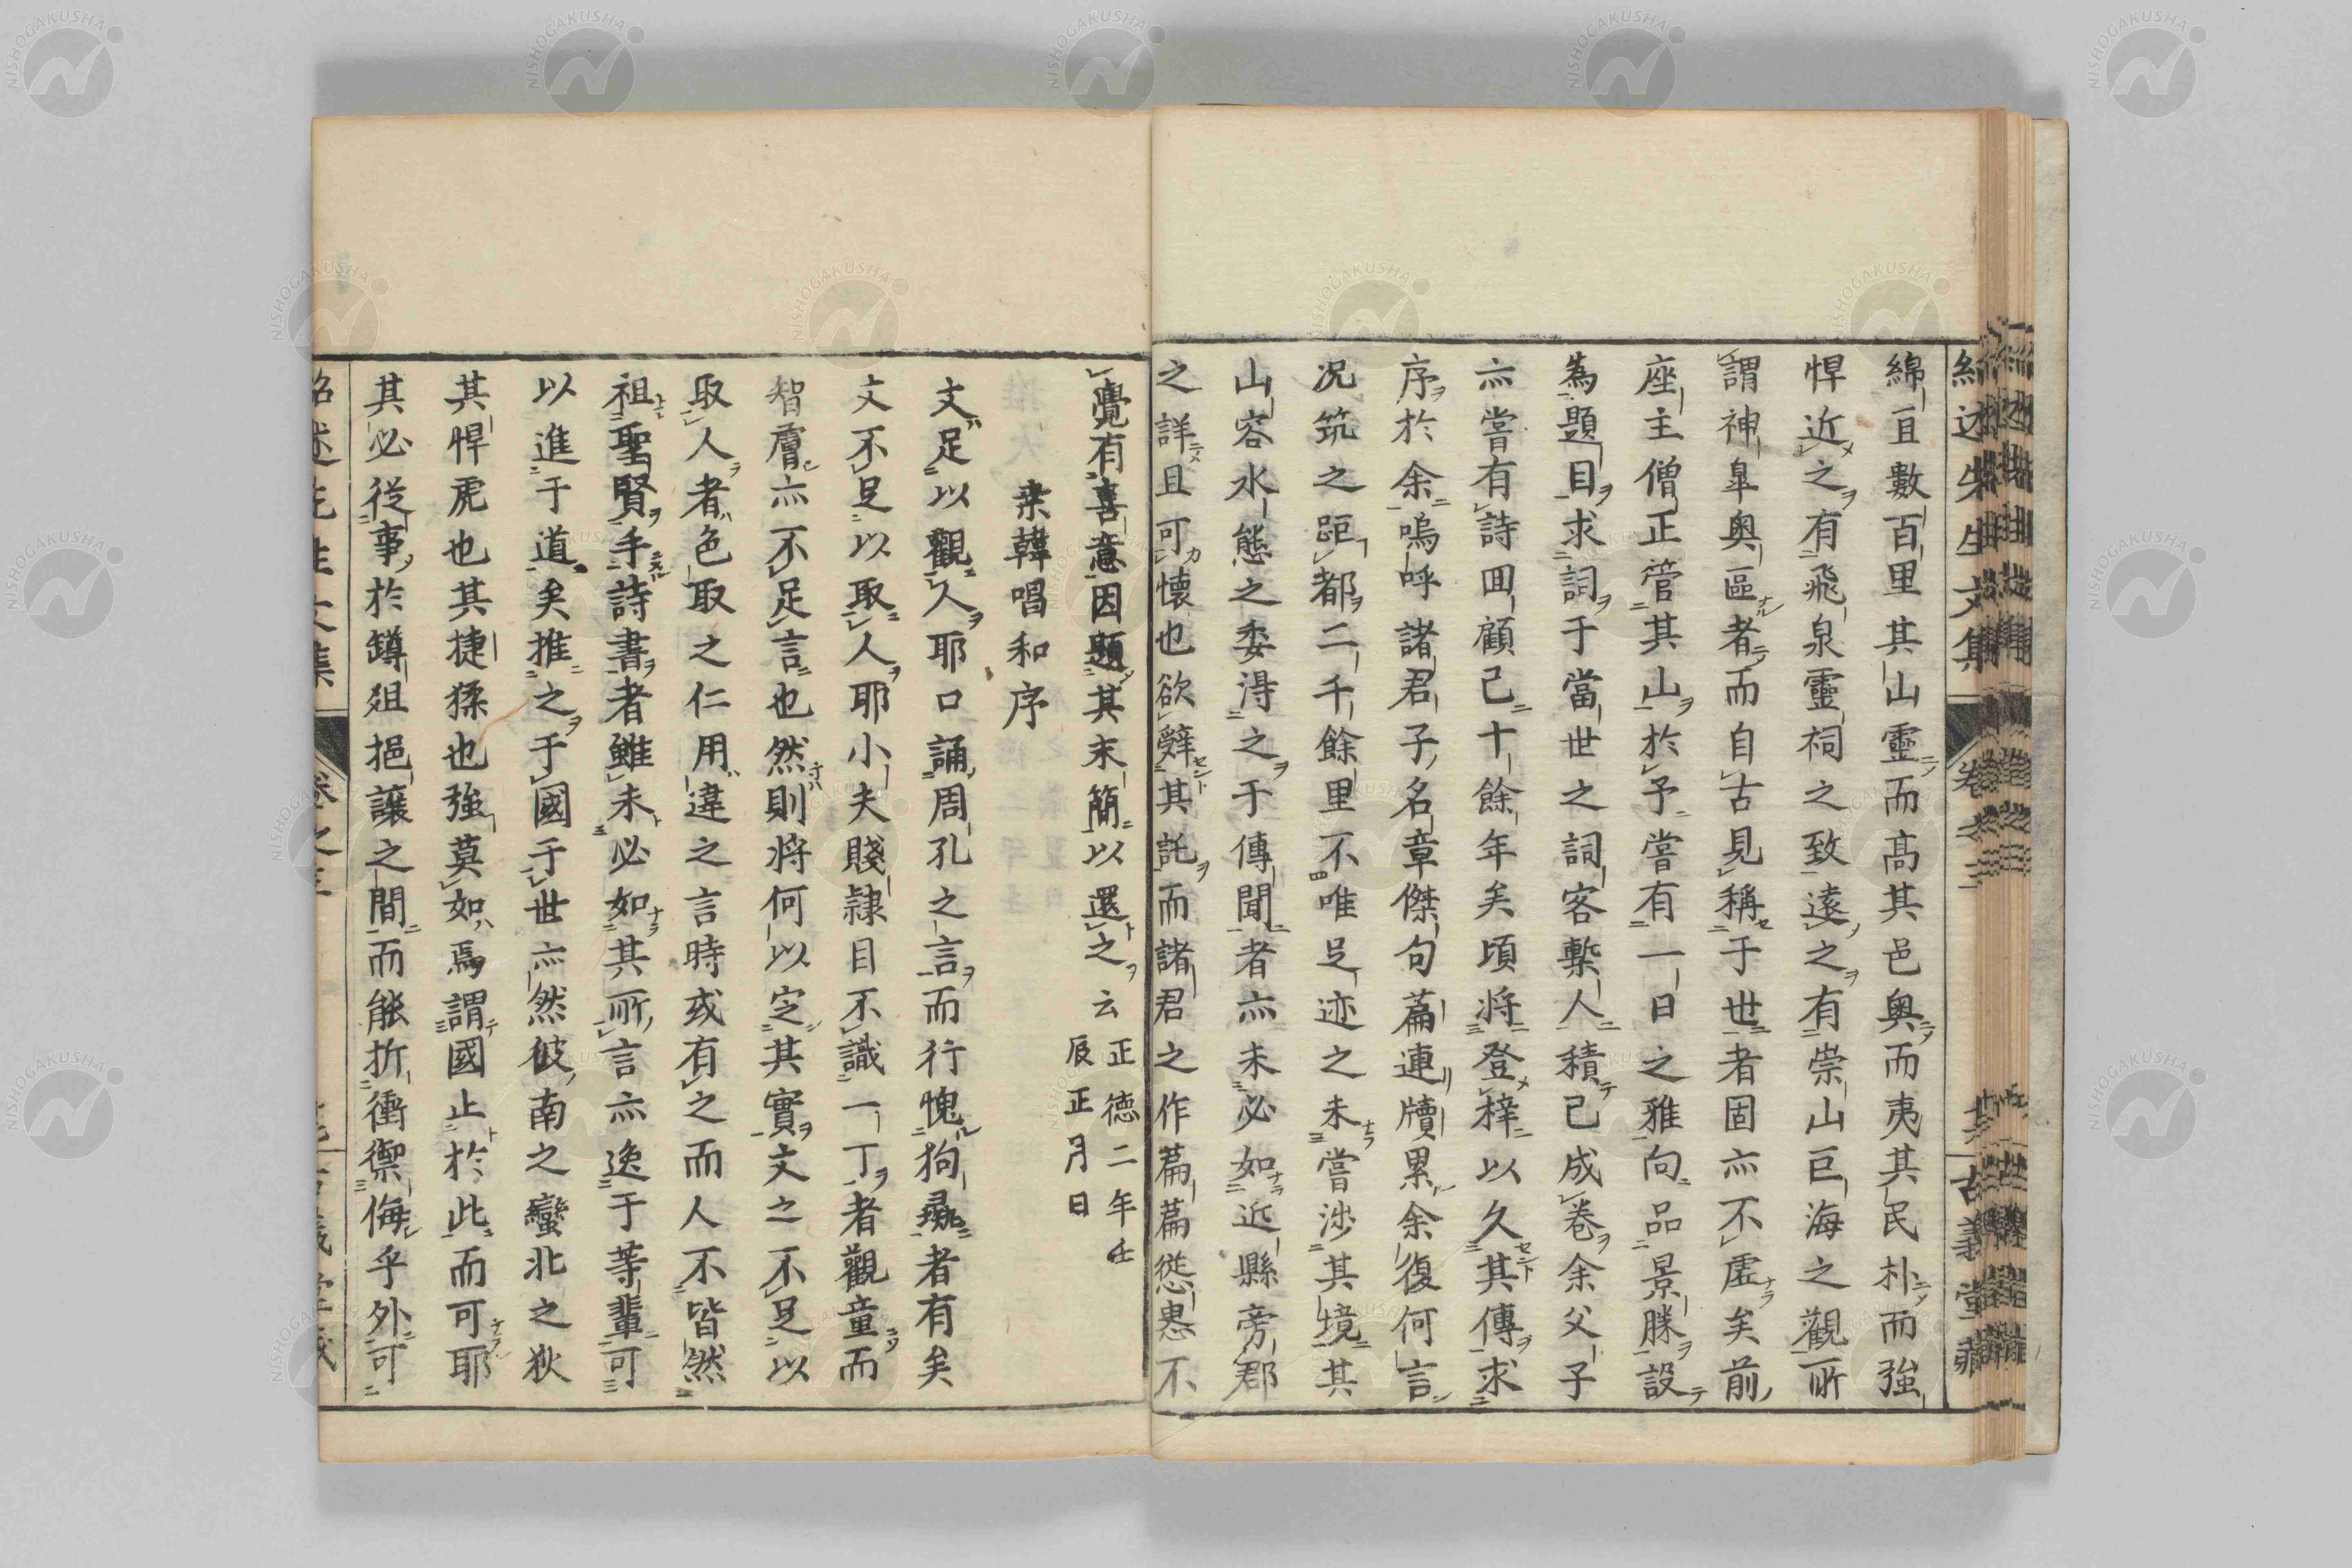 綿亘數百里其山靈而髙其邑奥而夷其民朴而強
悍近之有飛泉靈祠之致遠之有崇山巨海之觀所
謂神皐奥區者而自古見稱于世者固亦不虚矣前
座主僧正管其山於予嘗有一日之雅向品景勝設
為題目求詞于當世之詞客槧人積已成卷余父子
亦嘗有詩囬顧已十餘年矣頃将登梓以久其傳求
序於余嗚呼諸君子名章傑句篇連牘累余復何言
况筑之距都二千餘里不唯足迹之未嘗渉其境其
山容水態之委淂之于傳聞者亦未必如近縣旁郡
之詳且可懐也欲辤其託而諸君之作篇篇慫慂不
覺有喜意因題其末簡以還之云 正德二年壬
辰正月日
桒韓唱和序
文足以觀人耶口誦周孔之言而行愧狗彘者有矣
文不足以取人耶小夫賤隷目不識一丁者觀童而
智膚亦不足言也然則将何以定其實文之不足以
取人者色取之仁用違之言時或有之而人不皆然
祖聖賢手詩書者雖未必如其所言亦逸于等輩可
以進于道矣推之于國于世亦然彼南之蠻北之狄
其悍虎也其捷猱也強莫如焉謂國止於此而可耶
其必從事於罇俎挹讓之間而能折衝禦侮乎外可
紹述先生文集 卷之三 古義堂藏
NISHOGAKUSHA